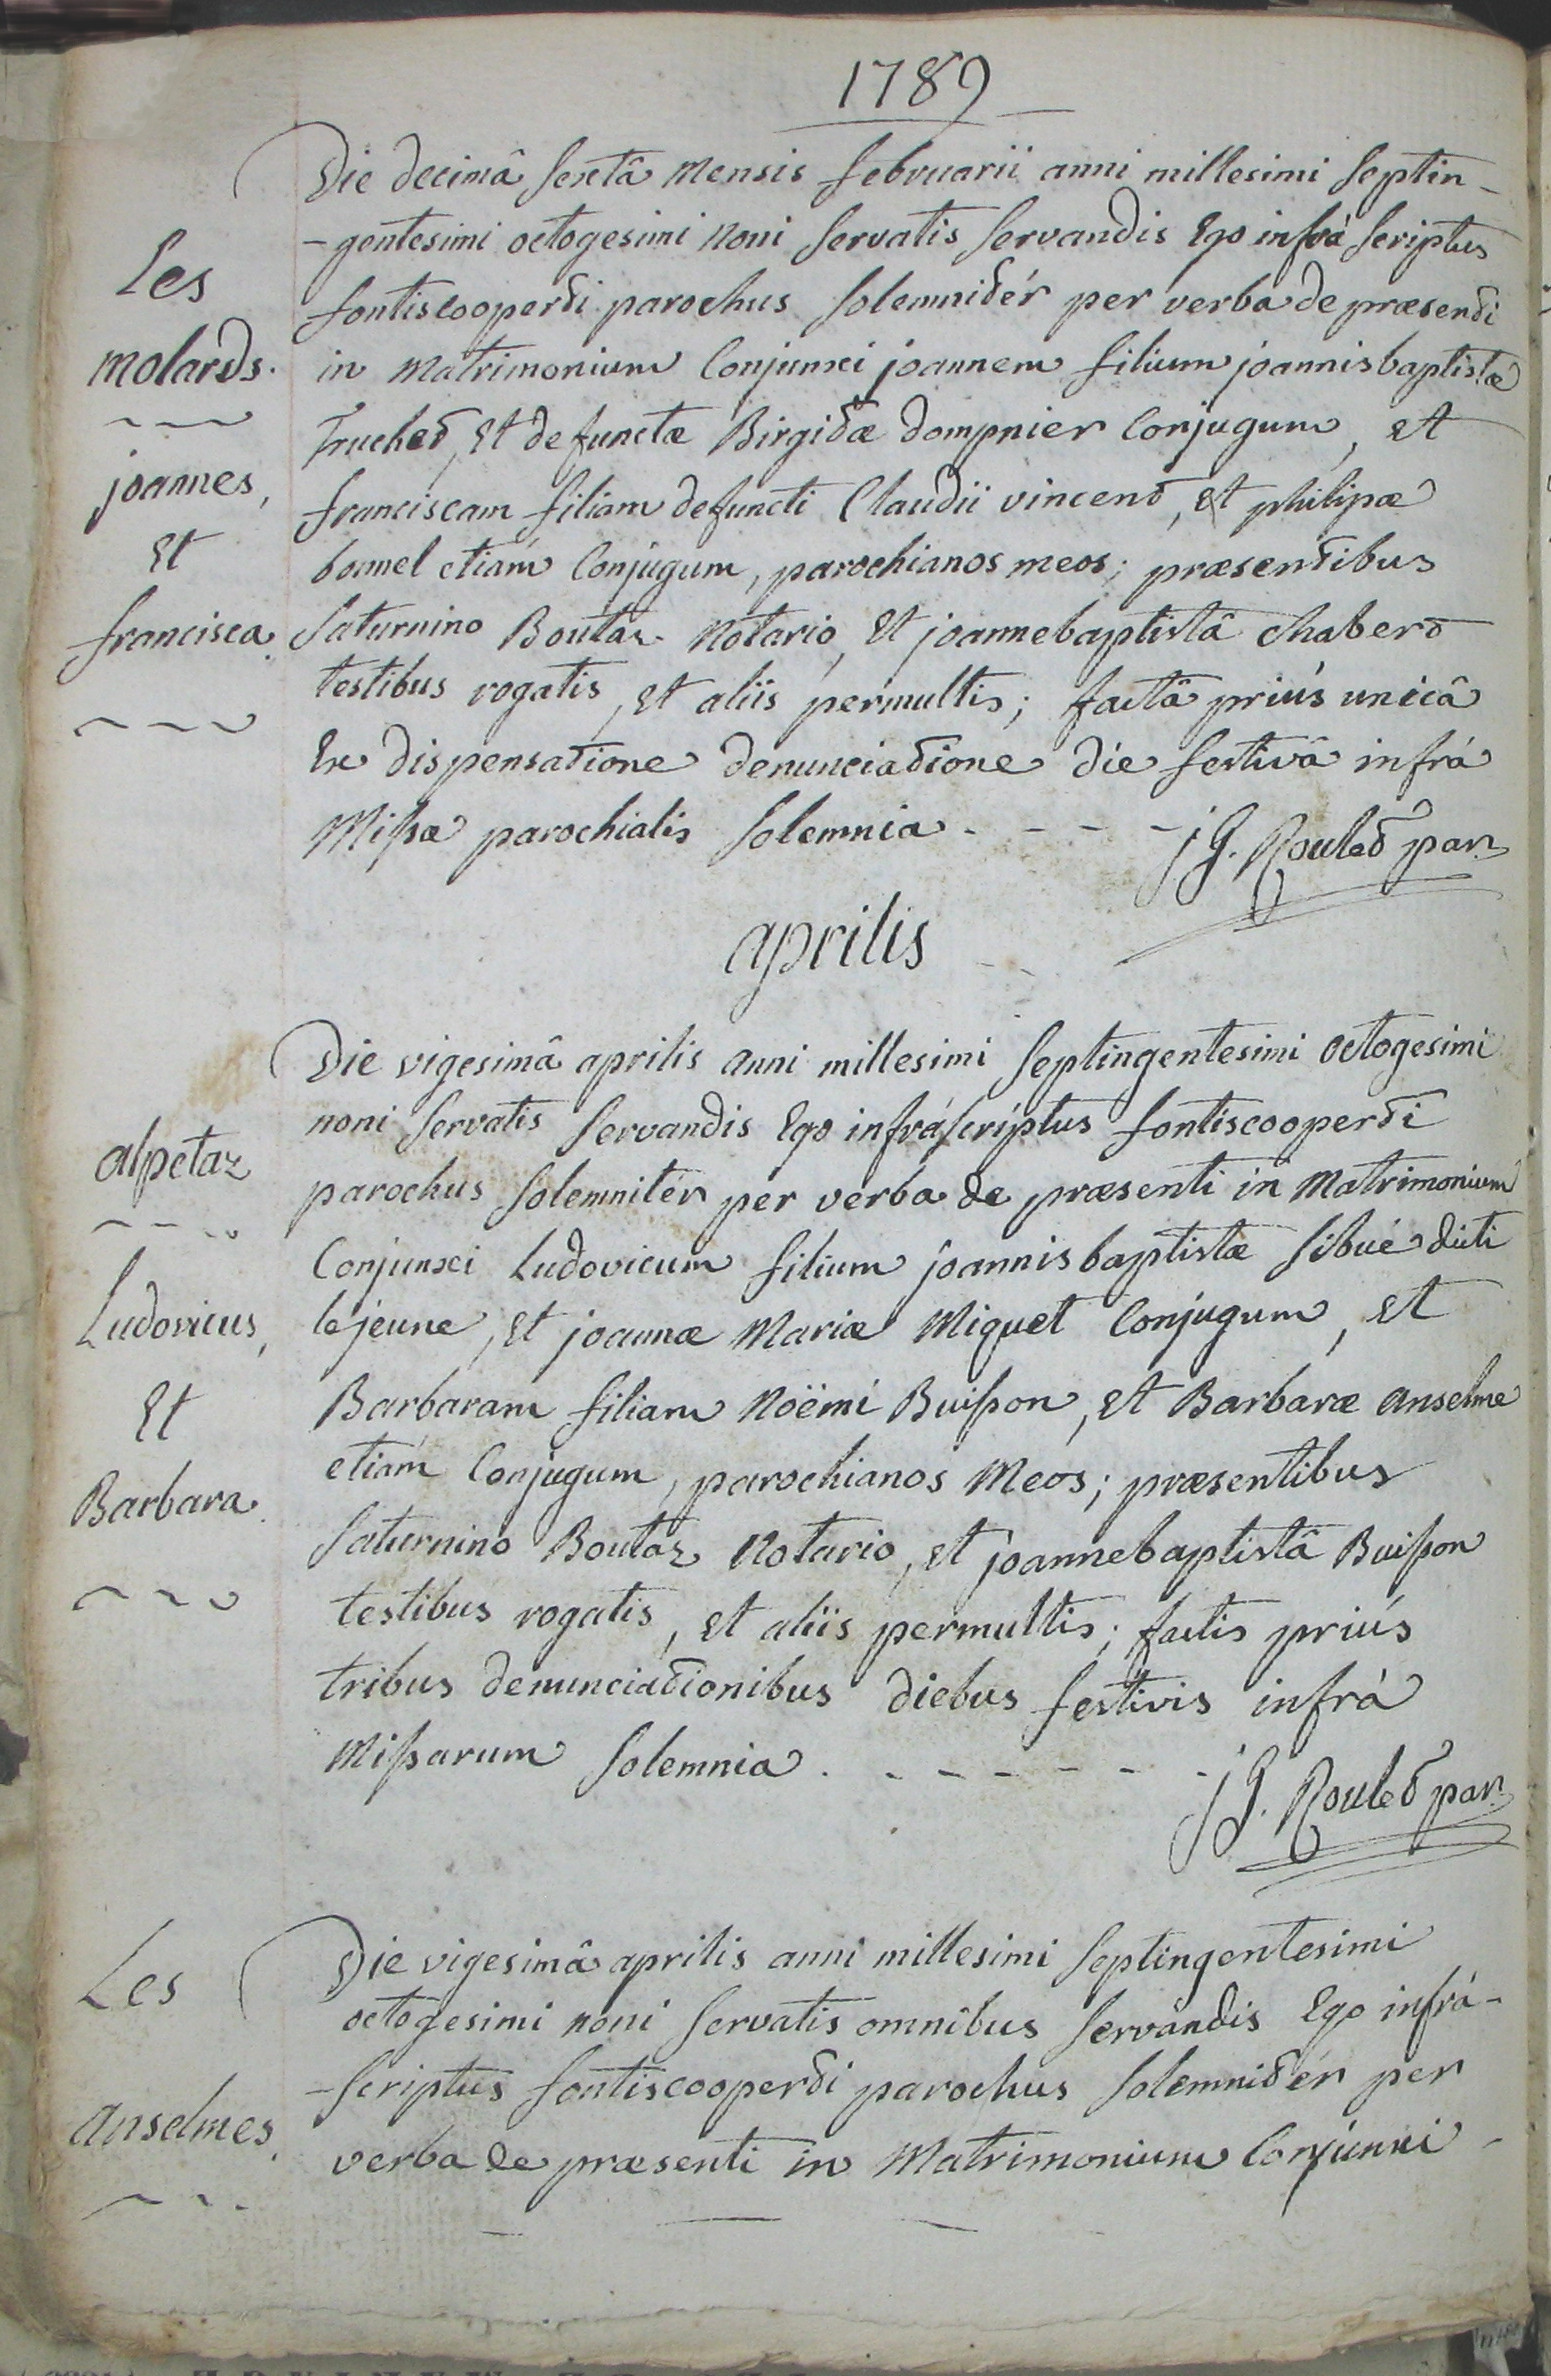 1789
Die decimâ sextâ mensis februarii anni millesimi septin-
-gentesimi octogesimi noni servatis servandis Ego infrà scriptus
fontiscooperti parochus solemnitér per verba de præsenti
in matrimonium Conjunxi joannem filium joannisbaptistæ
Truchet, Et defunctæ Birgitæ dompnier Conjugum, Et
franciscam filiam defuncti Claudii vincent, Et philipæ
bonnel etiám Conjugum, parochianos meos; præsentibus
Saturnino Boutaz Notario, Et joannebaptistâ chabert
testibus rogatis, Et aliis permultis; factâ priùs unicâ
Ex dispensatione denunciatione die festivâ infrá
Missæ parochialis solemnia - - - - j G. Roulet par.
Les
molards.
joannes,
Et
francisca.
aprilis
Die vigesimâ aprilis anni millesimi septingentesimi octogesimi
noni servatis servandis Ego infráscriptus fontiscooperti
parochus solemnitér per verba de præsenti in Matrimonium
Conjunxi Ludovicum filium joannisbaptistæ sibué dicti
lejeune, Et joannæ Mariæ Miguet Conjugum, Et
Barbaram filiam Noëmi Buisson, Et Barbaræ anselme
etiám Conjugum, parochianos Meos; præsentibus
Saturnino Boutaz Notario, Et joannebaptistâ Buisson
testibus rogatis, Et aliis permultis; factis priùs
tribus denunciationibus diebus festivis infrá
Missarum solemnia . - - - - - - j G. Roulet par.
alpetaz
Ludovicus,
Et
Barbara.
Die vigesimâ aprilis anni millesimi septingentesimi
octogesimi noni servatis omnibus servandis Ego infrá-
-scriptus fontiscooperti parochus solemnitér per
verba de præsenti in Matrimonium Conjunxi -
Les
anselmes.